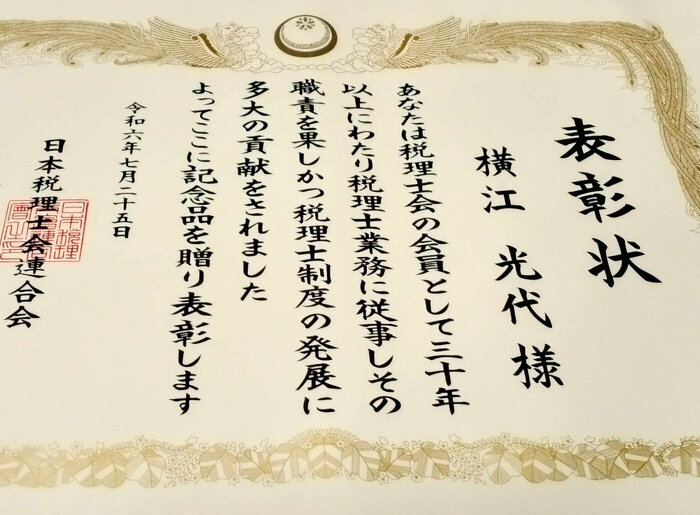 表彰状
横江 光代 様
あなたは税理士会の会員として三十年
以上にわたり税理士業務に従事しその
職責を果しかつ税理士制度の発展に
多大の貢献をされました
よってここに記念品を贈り表彰します
令和六年七月二十五日
日本税理士会連合会